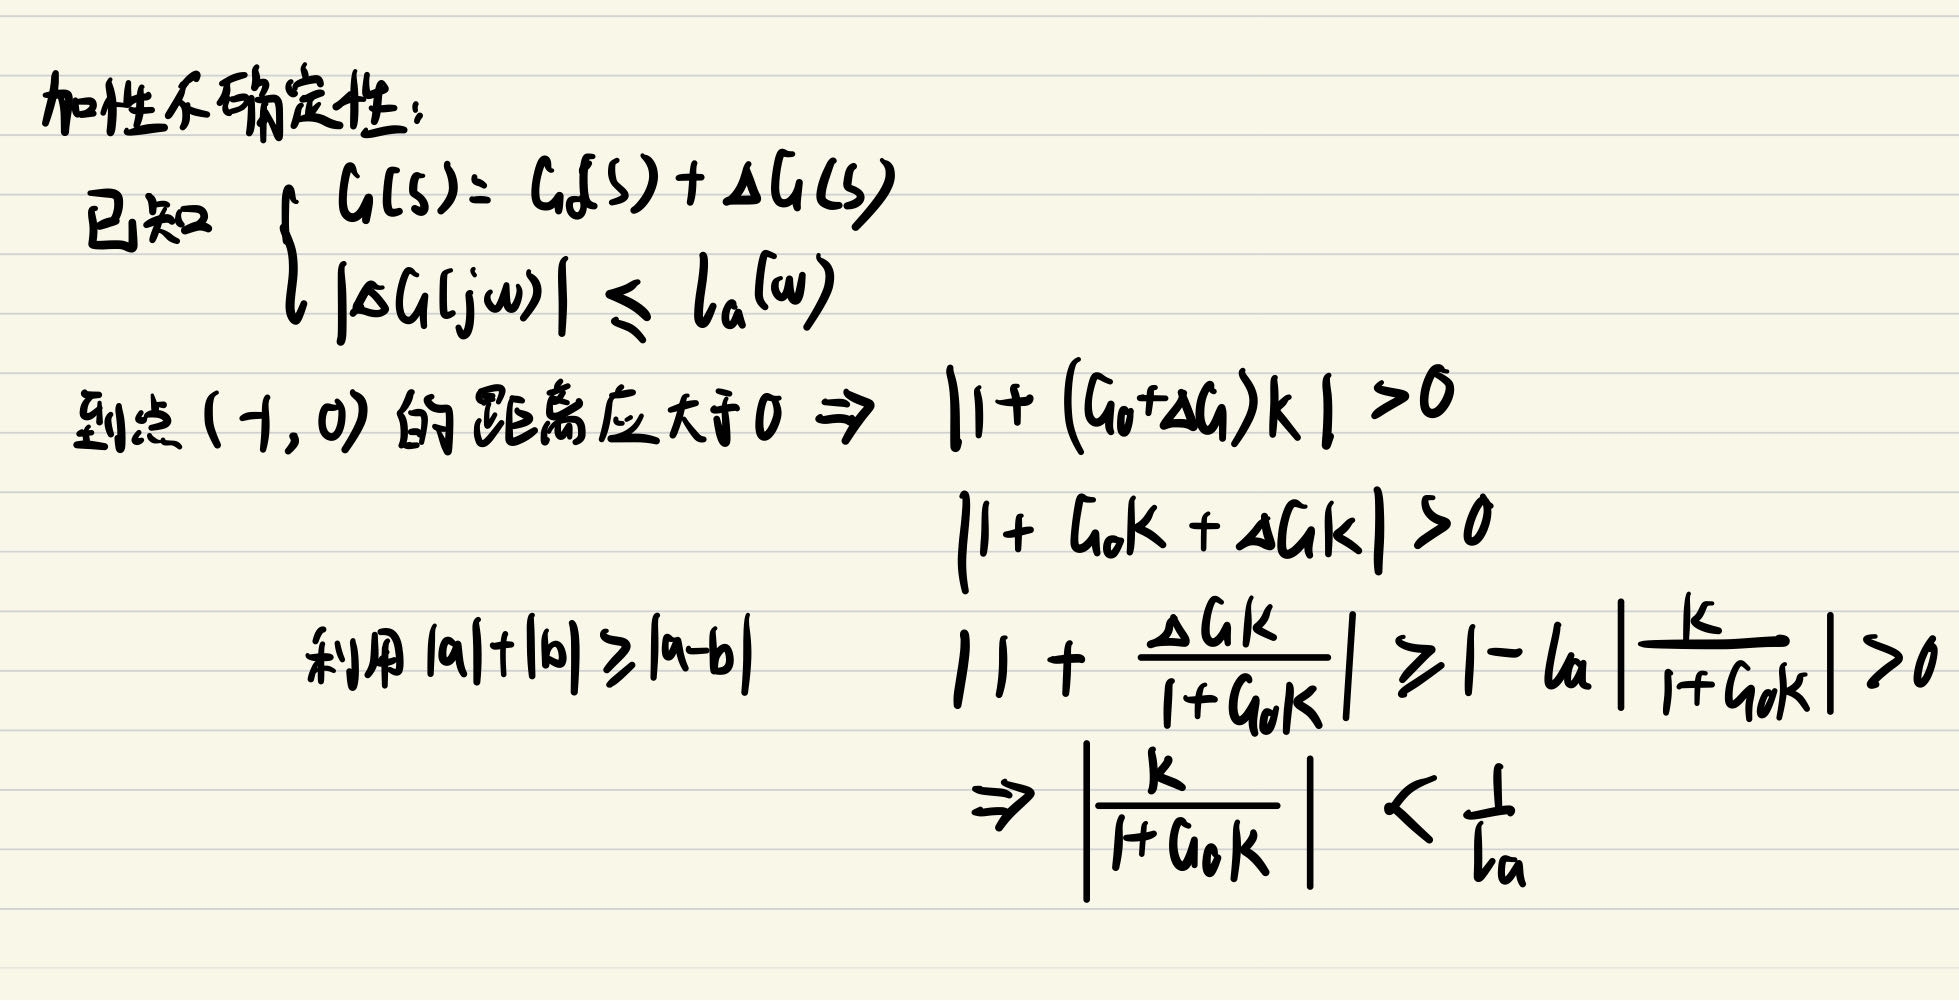 加性不确定性:
已知 { G(s) = G₀(s) + ΔG(s)
|ΔG(jω)| ≤ lₐ(ω)
到点(-1,0)的距离应大于0 ⇒ |1+(G₀+ΔG)K| >0
|1+ G₀K + ΔGK| >0
利用|a|+|b|≥|a-b| |1 + ΔGK/(1+G₀K)| ≥ 1 - lₐ|K/(1+G₀K)| >0
⇒ |K/(1+G₀K)| < 1/lₐ